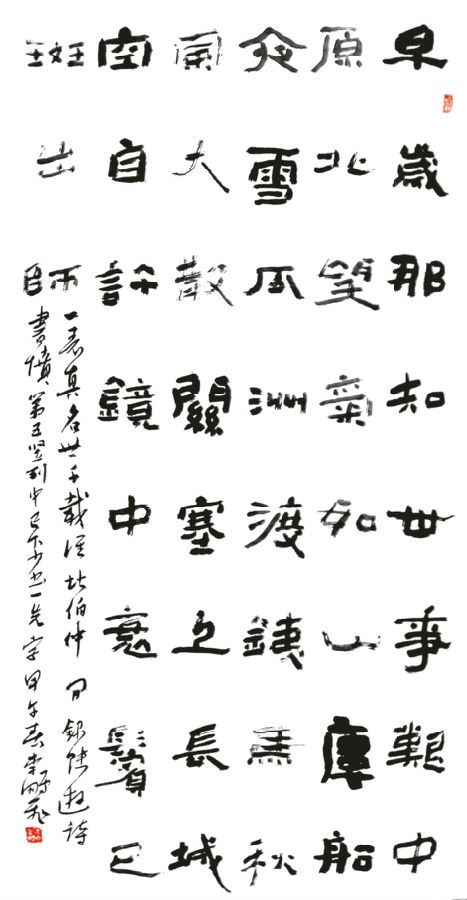 早歲那知世事艱中
原北望氣如山廔船
夜雪瓜洲渡銕馬秋
風大散關塞上長城
空自許鏡中衰鬢已
斑出師
一表真名世千載誰堪伯仲間 錄陸遊詩
書憤 第五竖列中已下少書一先字 甲午春